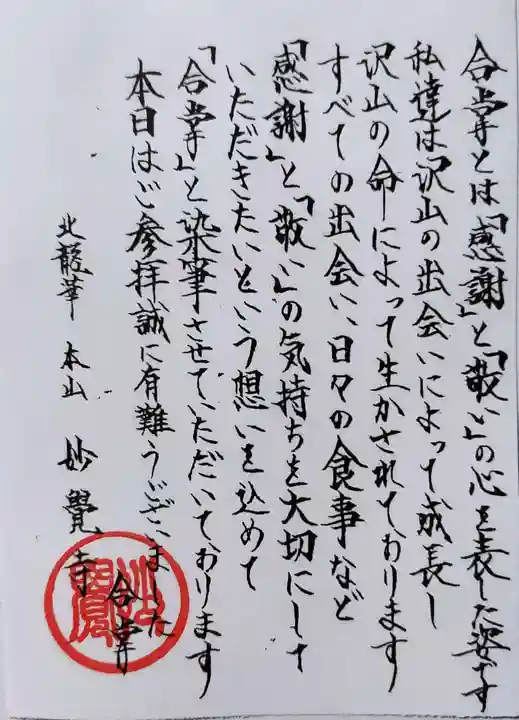 合掌とは「感謝」と「敬い」の心を表した姿です
私達は沢山の出会いによって成長し
沢山の命によって生かされております
すべての出会い、日々の食事など
「感謝」と「敬い」の気持ちを大切にして
いただきたいという想いを込めて
「合掌」と染筆させていただいております
本日はご参拝誠に有難うございました
北龍華 本山 妙覺寺 合掌
妙覺